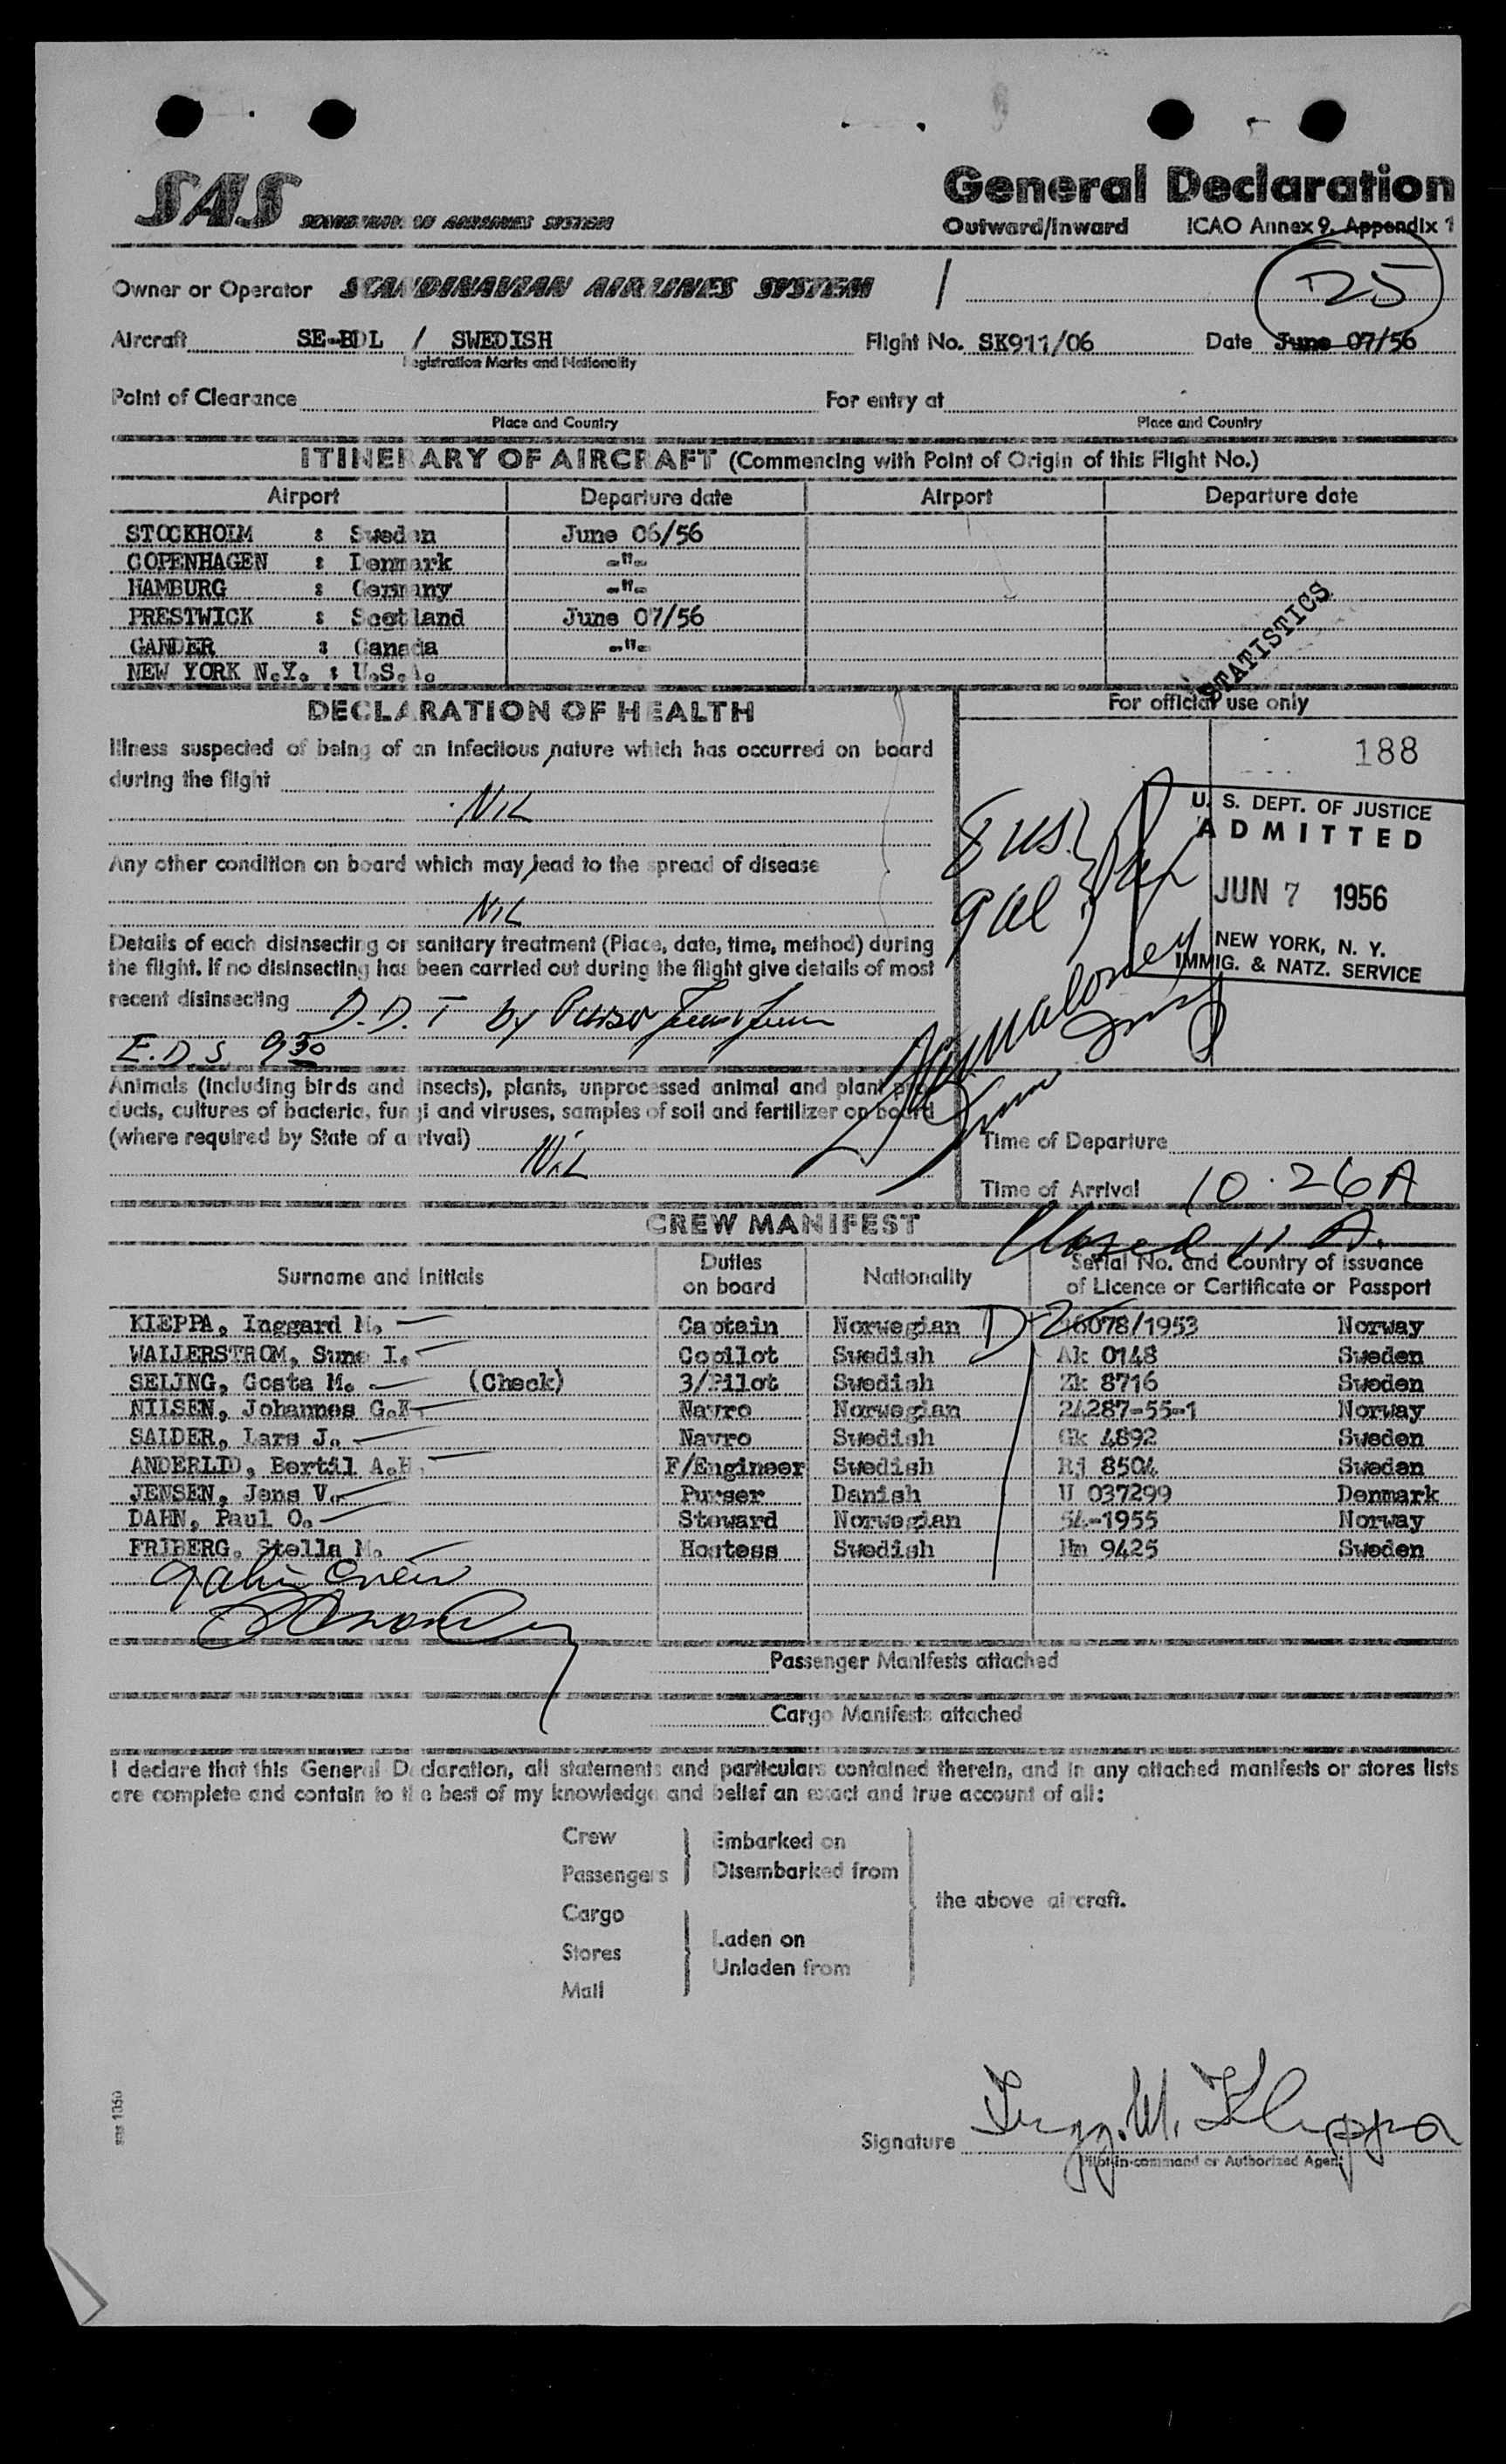 SAS SCANDINAVIAN AIRLINES SYSTEM
General Declaration
Outward/Inward ICAO Annex 9, Appendix 1
Owner or Operator SCANDINAVIAN AIRLINES SYSTEM /
D5
Aircraft SE-BDL / SWEDISH Flight No. SK911/06 Date June 07/56
Registration Marks and Nationality
Point of Clearance For entry at
Place and Country Place and Country
ITINERARY OF AIRCRAFT (Commencing with Point of Origin of this Flight No.)
Airport Departure date Airport Departure date
STOCKHOLM : Sweden June 06/56
COPENHAGEN : Denmark -"-
HAMBURG : Germany -"-
PRESTWICK : Scotland June 07/56
GANDER : Canada -"-
NEW YORK N.Y. : U.S.A.
STATISTICS
DECLARATION OF HEALTH
For official use only
Illness suspected of being of an infectious nature which has occurred on board
during the flight
Nil
188
U. S. DEPT. OF JUSTICE
ADMITTED
JUN 7 1956
NEW YORK, N. Y.
IMMIG. & NATZ. SERVICE
8 US
9 al
Any other condition on board which may lead to the spread of disease
Nil
Details of each disinsecting or sanitary treatment (Place, date, time, method) during
the flight. If no disinsecting has been carried out during the flight give details of most
recent disinsecting D.D.T by Purser
E.D.S. 9 30
Animals (including birds and insects), plants, unprocessed animal and plant pro-
ducts, cultures of bacteria, fungi and viruses, samples of soil and fertilizer on board
(where required by State of arrival) Nil
Time of Departure
Time of Arrival 10.26 A
Closed 11 A.
CREW MANIFEST
Surname and Initials Duties on board Nationality Serial No. and Country of issuance of Licence or Certificate or Passport
KLEPPA, Inggard M. Captain Norwegian 16078/1953 Norway
WALLERSTROM, Sune I. Copilot Swedish Ak 0148 Sweden
SELING, Gosta M. (Check) 3/Pilot Swedish Zk 8716 Sweden
NILSEN, Johannes G. Navro Norwegian 24287-55-1 Norway
SALDER, Lars J. Navro Swedish Gk 4892 Sweden
ANDERLID, Bertil A.H. F/Engineer Swedish Rj 8504 Sweden
JENSEN, Jens V. Purser Danish U 037299 Denmark
DAHN, Paul O. Steward Norwegian 54-1955 Norway
FRIBERG, Stella M. Hostess Swedish Hm 9425 Sweden
Passenger Manifests attached
Cargo Manifests attached
I declare that this General Declaration, all statements and particulars contained therein, and in any attached manifests or stores lists
are complete and contain to the best of my knowledge and belief an exact and true account of all:
Crew
Passengers
Embarked on
Disembarked from
Cargo
Stores
Mail
Laden on
Unladen from
the above aircraft.
Signature Ingg. M. Kleppa
Pilot-in-command or Authorized Agent
sas 1050